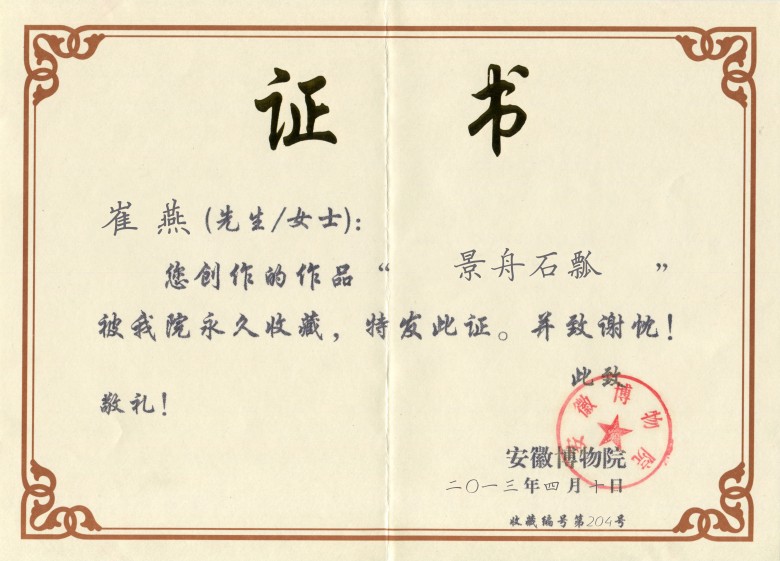 证书
崔燕(先生/女士):
您创作的作品“景舟石瓢”
被我院永久收藏,特发此证。并致谢忱!
此致
敬礼!
安徽博物院
安徽博物院
二〇一三年四月十日
收藏编号第204号